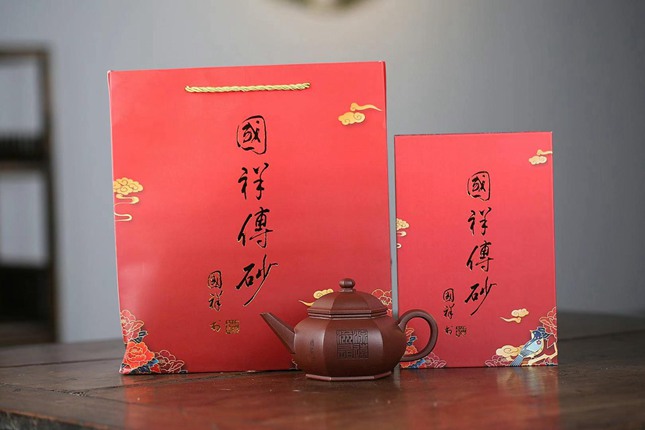 國祥傳砂
國祥
國祥傳砂
國祥